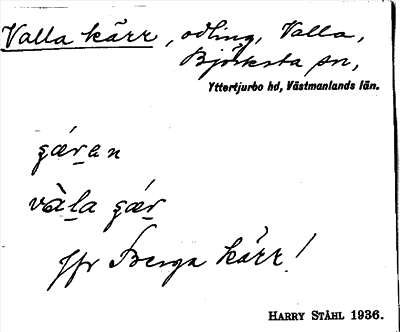 Valla kärr, odling, Valla,
Björksta sn,
Yttertjurbo hd, Västmanlands län.
çǽṟan
và̱ḻa çǽṟ
Jfr Berga kärr!
HARRY STÅHL 1936.